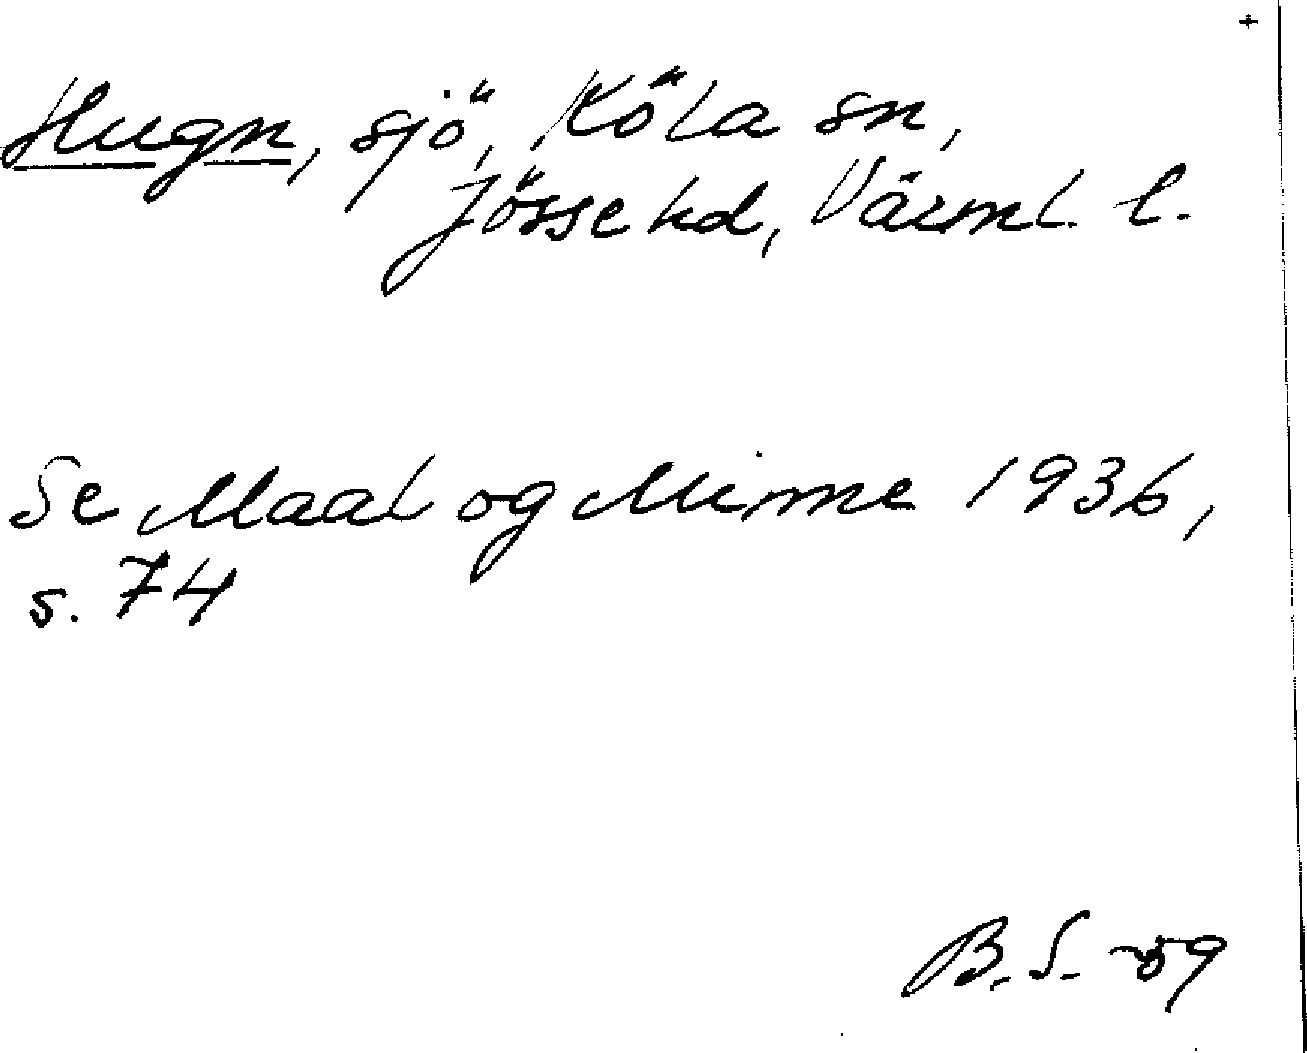 Hugn, sjö, Köla sn,
Jösse hd, Värml. l.
Se Maal og Minne 1936,
s. 74
B. S. -59